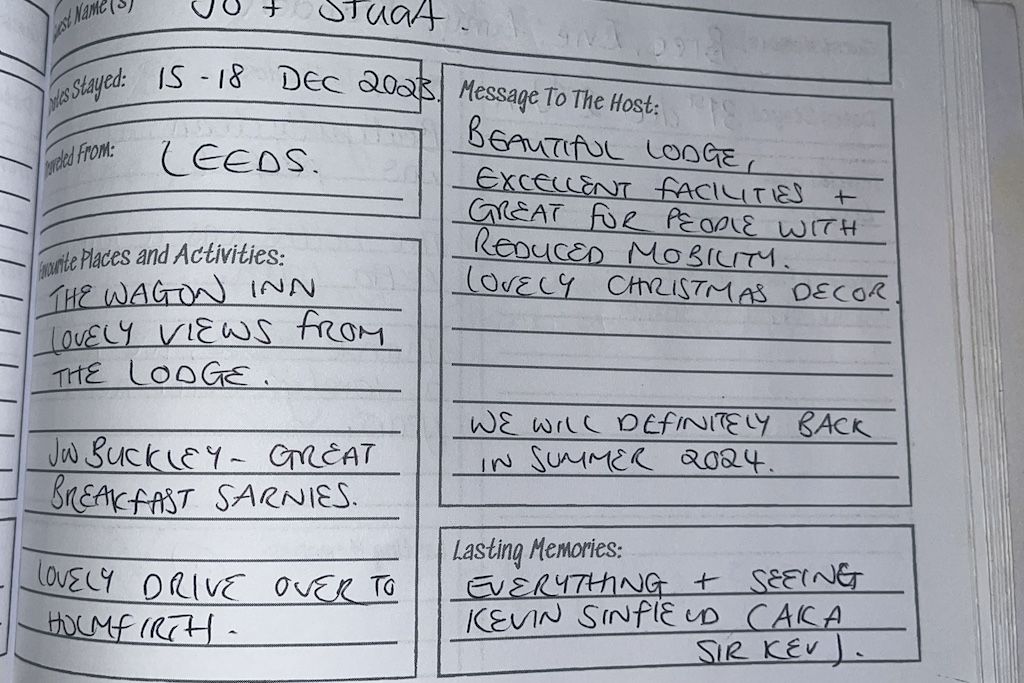 Guest Name(s)
Jo + Stuat.
Dates Stayed: 15 - 18 DEC 2023.
Traveled From: LEEDS.
Favourite Places and Activities:
THE WAGON INN
LOVELY VIEWS FROM
THE LODGE.
JW BUCKLEY - GREAT
BREAKFAST SARNIES.
LOVELY DRIVE OVER TO
HOLMFIRTH.
Message To The Host:
BEAUTIFUL LODGE,
EXCELLENT FACILITIES +
GREAT FOR PEOPLE WITH
REDUCED MOBILITY.
LOVELY CHRISTMAS DECOR.
WE WILL DEFINITELY BACK
IN SUMMER 2024.
Lasting Memories:
EVERYTHING + SEEING
KEVIN SINFIELD (AKA
SIR KEV).